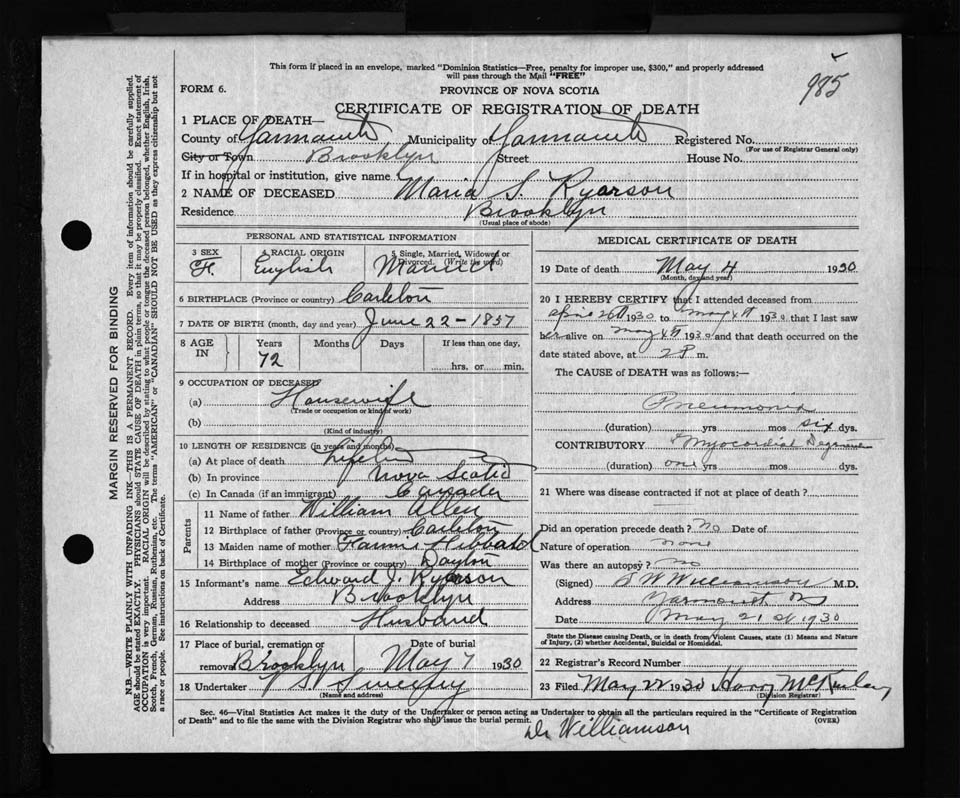 985
This form if placed in an envelope, marked "Dominion Statistics—Free, penalty for improper use, $300," and properly addressed
will pass through the Mail "FREE"
FORM 6. PROVINCE OF NOVA SCOTIA
CERTIFICATE OF REGISTRATION OF DEATH
1 PLACE OF DEATH—
County of Yarmouth Municipality of Yarmouth Registered No.
(For use of Registrar General only)
City or Town Brooklyn Street House No.
If in hospital or institution, give name
2 NAME OF DECEASED Maria S. Ryerson
Residence Brooklyn
(Usual place of abode)
PERSONAL AND STATISTICAL INFORMATION
3 SEX 4 RACIAL ORIGIN 5 Single, Married, Widowed or Divorced. (Write the word)
F. English Married
6 BIRTHPLACE (Province or country) Carleton
7 DATE OF BIRTH (month, day and year) June 22 - 1857
8 AGE IN Years Months Days If less than one day,
72 hrs. or min.
9 OCCUPATION OF DECEASED
(a) Housewife
(Trade or occupation or kind of work)
(b)
(Kind of industry)
10 LENGTH OF RESIDENCE (in years and months)
(a) At place of death Life
(b) In province Nova Scotia
(c) In Canada (if an immigrant) Canada
Parents
11 Name of father William Allen
12 Birthplace of father (Province or country) Carleton
13 Maiden name of mother Hibbard
14 Birthplace of mother (Province or country) Dayton
15 Informant's name Edward J. Ryerson
Address Brooklyn
16 Relationship to deceased Husband
17 Place of burial, cremation or removal Date of burial
Brooklyn May 7 1930
18 Undertaker V S Sweeny
(Name and address)
MEDICAL CERTIFICATE OF DEATH
19 Date of death May 4 1930
(Month, day and year)
20 I HEREBY CERTIFY that I attended deceased from
April 26th 1930 to May 4th 1930 that I last saw
her alive on May 4th 1930 and that death occurred on the
date stated above, at 2 P m.
The CAUSE of DEATH was as follows:—
Pneumonia
(duration) yrs mos six dys.
CONTRIBUTORY Myocardial
(duration) one yrs mos dys.
21 Where was disease contracted if not at place of death?
Did an operation precede death? no Date of
Nature of operation none
Was there an autopsy? No
(Signed) Williamson M.D.
Address Yarmouth
Date May 21st 1930
State the Disease causing Death, or in death from Violent Causes, state (1) Means and Nature
of Injury, (2) whether Accidental, Suicidal or Homicidal.
22 Registrar's Record Number
23 Filed May 22 1930 Harry McKinley
(Division Registrar)
Sec. 46—Vital Statistics Act makes it the duty of the Undertaker or person acting as Undertaker to obtain all the particulars required in the "Certificate of Registration
of Death" and to file the same with the Division Registrar who shall issue the burial permit. (OVER)
Dr Williamson
MARGIN RESERVED FOR BINDING
N.B.—WRITE PLAINLY WITH UNFADING INK—THIS IS A PERMANENT RECORD. Every item of information should be carefully supplied.
AGE should be stated EXACTLY. PHYSICIANS should STATE CAUSE OF DEATH in plain terms, so that it may be properly classified. Exact statement of
OCCUPATION is very important. RACIAL ORIGIN will be described by stating to what people or tongue the deceased person belonged, whether English, Irish,
Scotch, French, German, Russian, Ruthenian, etc. The terms "AMERICAN" or "CANADIAN" SHOULD NOT BE USED as they express citizenship but not
a race or people. See instructions on back of Certificate.